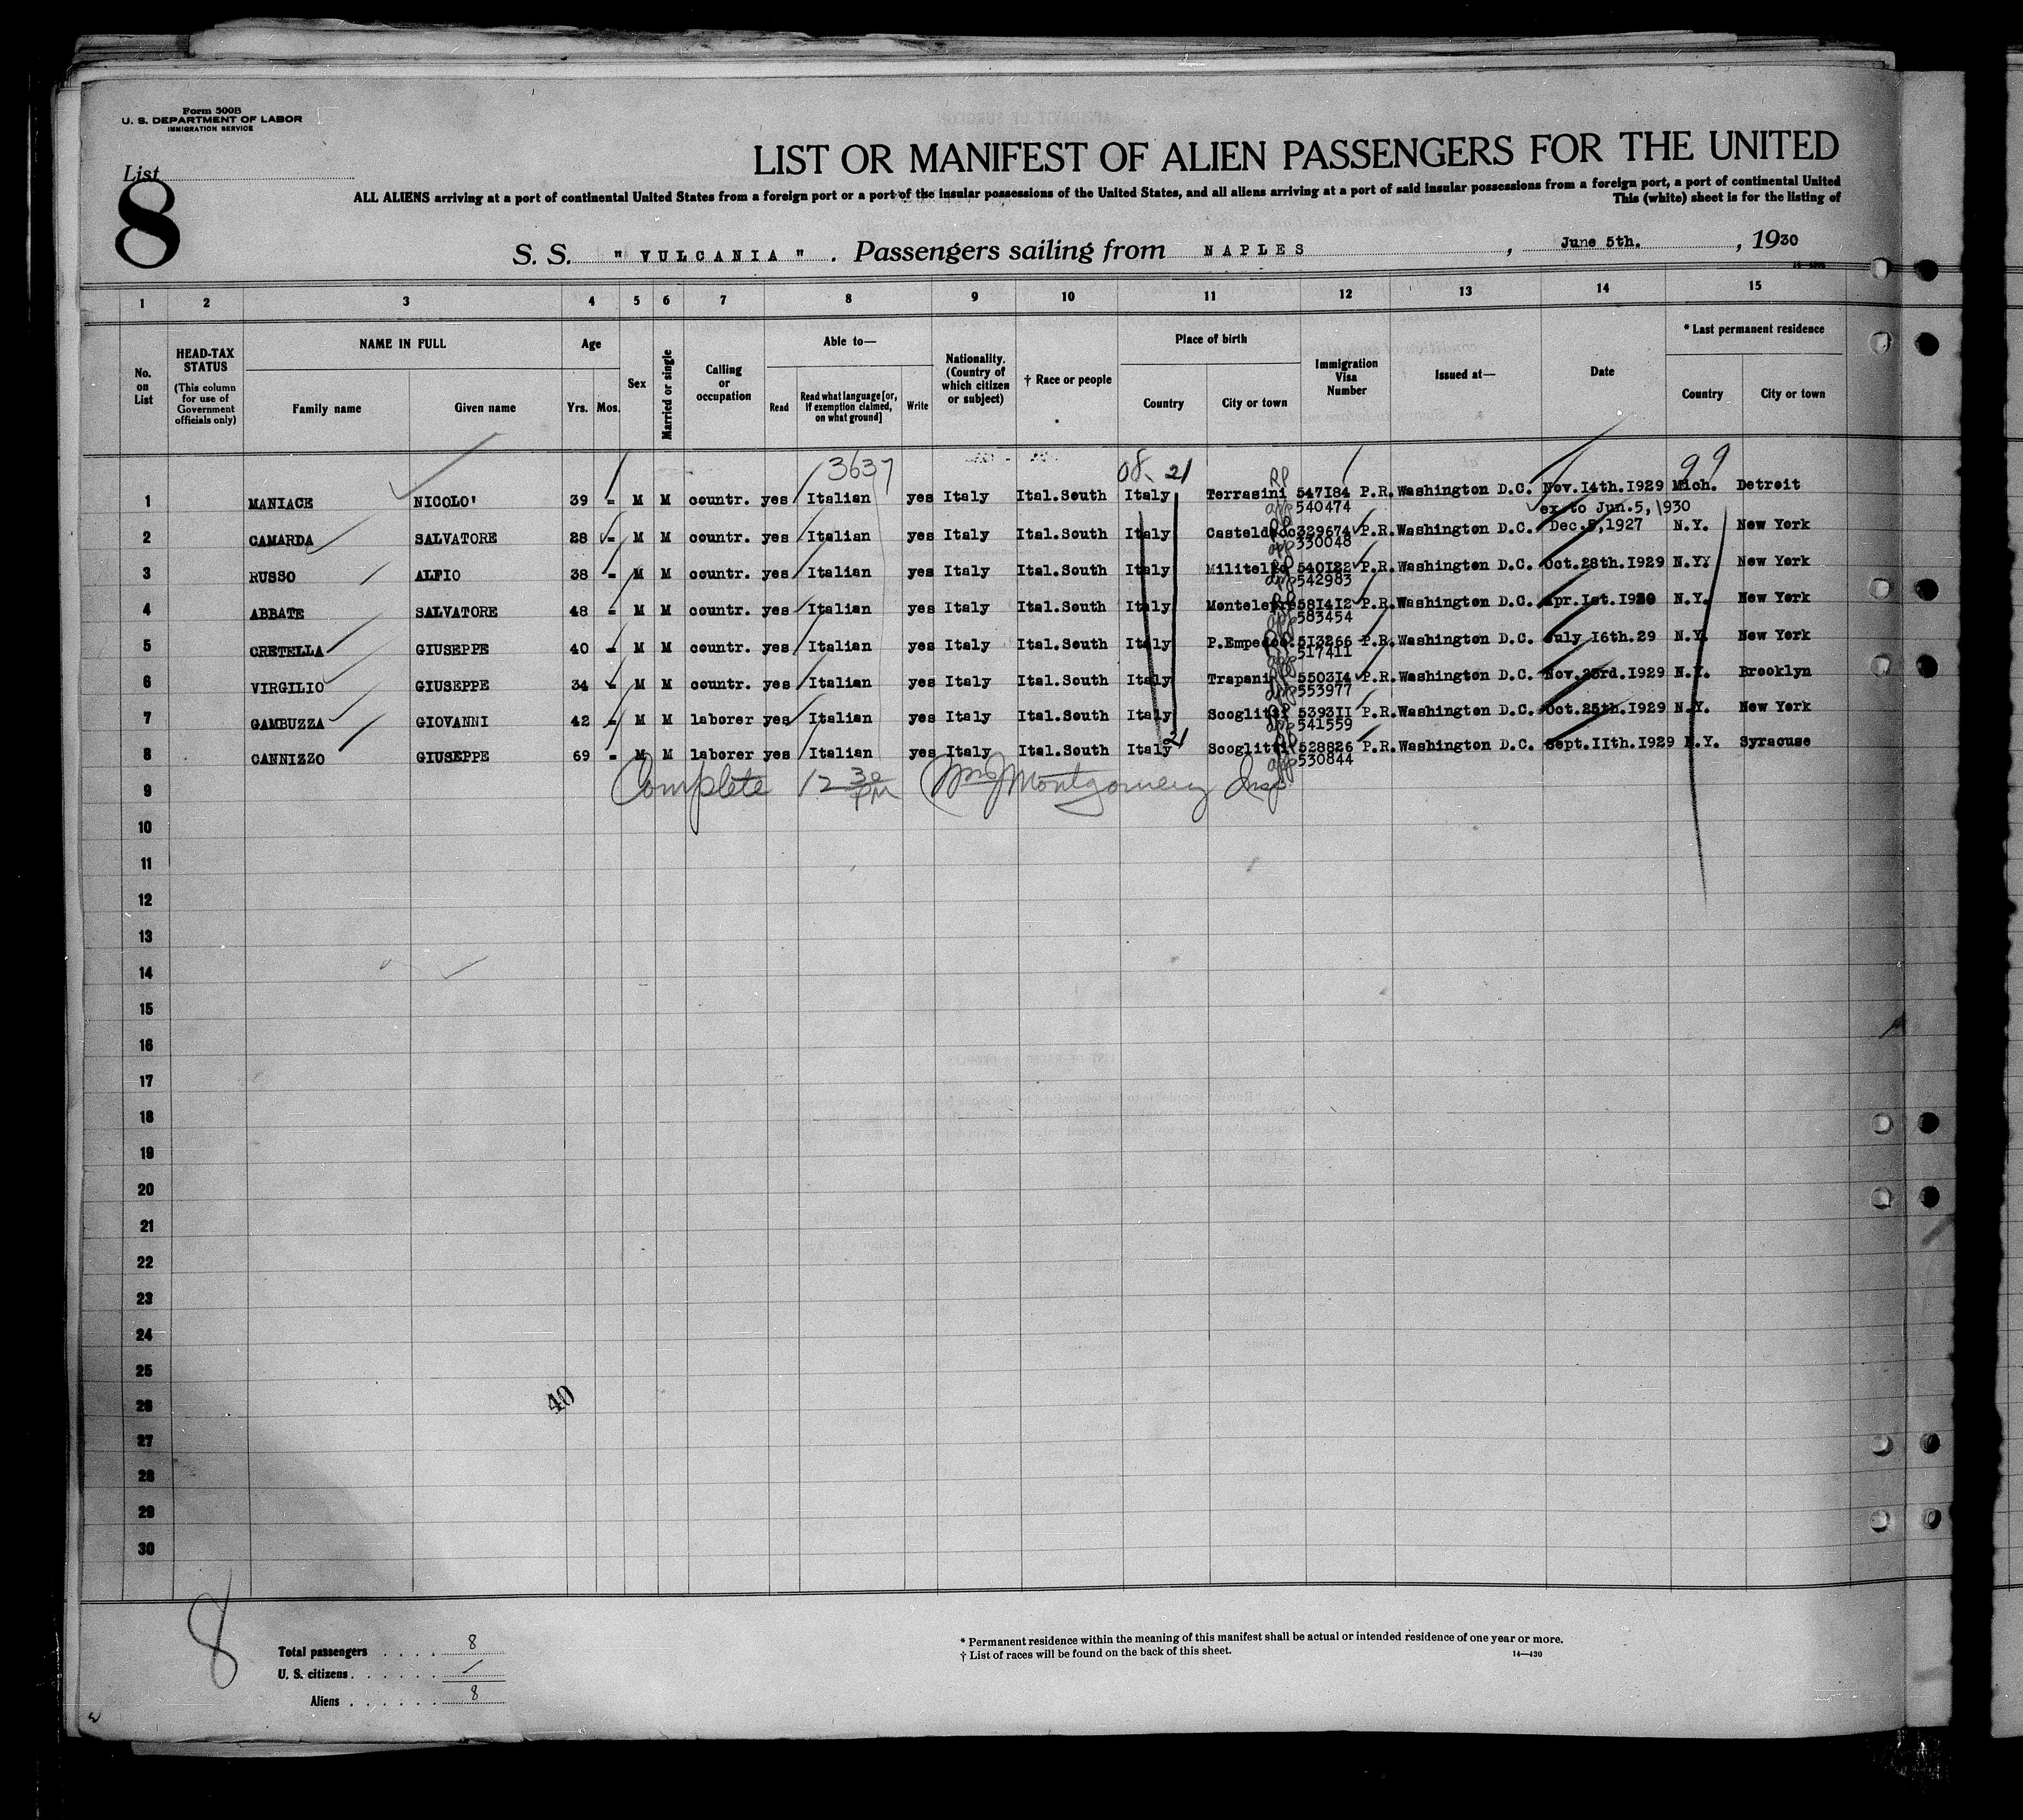 Form 500B
U. S. DEPARTMENT OF LABOR
IMMIGRATION SERVICE
List
8
LIST OR MANIFEST OF ALIEN PASSENGERS FOR THE UNITED
ALL ALIENS arriving at a port of continental United States from a foreign port or a port of the insular possessions of the United States, and all aliens arriving at a port of said insular possessions from a foreign port, a port of continental United
This (white) sheet is for the listing of
S. S. " VULCANIA " . Passengers sailing from NAPLES , June 5th. , 1930
1 2 3 4 5 6 7 8 9 10 11 12 13 14 15
No. on List
HEAD-TAX STATUS (This column for use of Government officials only)
NAME IN FULL Family name Given name
Age Yrs. Mos.
Sex
Married or single
Calling or occupation
Able to— Read Read what language [or, if exemption claimed, on what ground] Write
Nationality. (Country of which citizen or subject)
† Race or people
Place of birth Country City or town
Immigration Visa Number
Issued at—
Date
* Last permanent residence Country City or town
3637 08. 21 99
1 MANIACE NICOLO' 39 - M M countr. yes Italian yes Italy Ital.South Italy Terrasini RP 547184 P.R. Washington D.C. Nov.14th.1929 Mich. Detroit
app 540474 ex to Jun.5, 1930
2 CAMARDA SALVATORE 28 - M M countr. yes Italian yes Italy Ital.South Italy 329674 P.R. Washington D.C. Dec. ,1927 N.Y. New York
app 330048
3 RUSSO ALFIO 38 - M M countr. yes Italian yes Italy Ital.South Italy Militello 540122 P.R. Washington D.C. Oct.28th.1929 N.Y. New York
app 542983
4 ABBATE SALVATORE 48 - M M countr. yes Italian yes Italy Ital.South Italy 581412 P.R. Washington D.C. Apr.1st.1930 N.Y. New York
app 583454
5 CRETELLA GIUSEPPE 40 - M M countr. yes Italian yes Italy Ital.South Italy 513266 P.R. Washington D.C. July 16th.29 N.Y. New York
app 517411
6 VIRGILIO GIUSEPPE 34 - M M countr. yes Italian yes Italy Ital.South Italy Trapani 550314 P.R. Washington D.C. Nov.23rd.1929 N.Y. Brooklyn
app 553977
7 GAMBUZZA GIOVANNI 42 - M M laborer yes Italian yes Italy Ital.South Italy Scoglitti 539311 P.R. Washington D.C. Oct.25th.1929 N.Y. New York
app 541559
8 CANNIZZO GIUSEPPE 69 - M M laborer yes Italian yes Italy Ital.South Italy 21 Scoglitti RP 528826 P.R. Washington D.C. Sept.11th.1929 N.Y. Syracuse
app 530844
9 Complete 12 30 PM Montgomery Insp
10
11
12
13
14
15
16
17
18
19
20
21
22
23
24
25
26
40
27
28
29
30
8
Total passengers . . . . 8
U. S. citizens . . . . . .
Aliens . . . . . . 8
* Permanent residence within the meaning of this manifest shall be actual or intended residence of one year or more.
† List of races will be found on the back of this sheet.
14—430